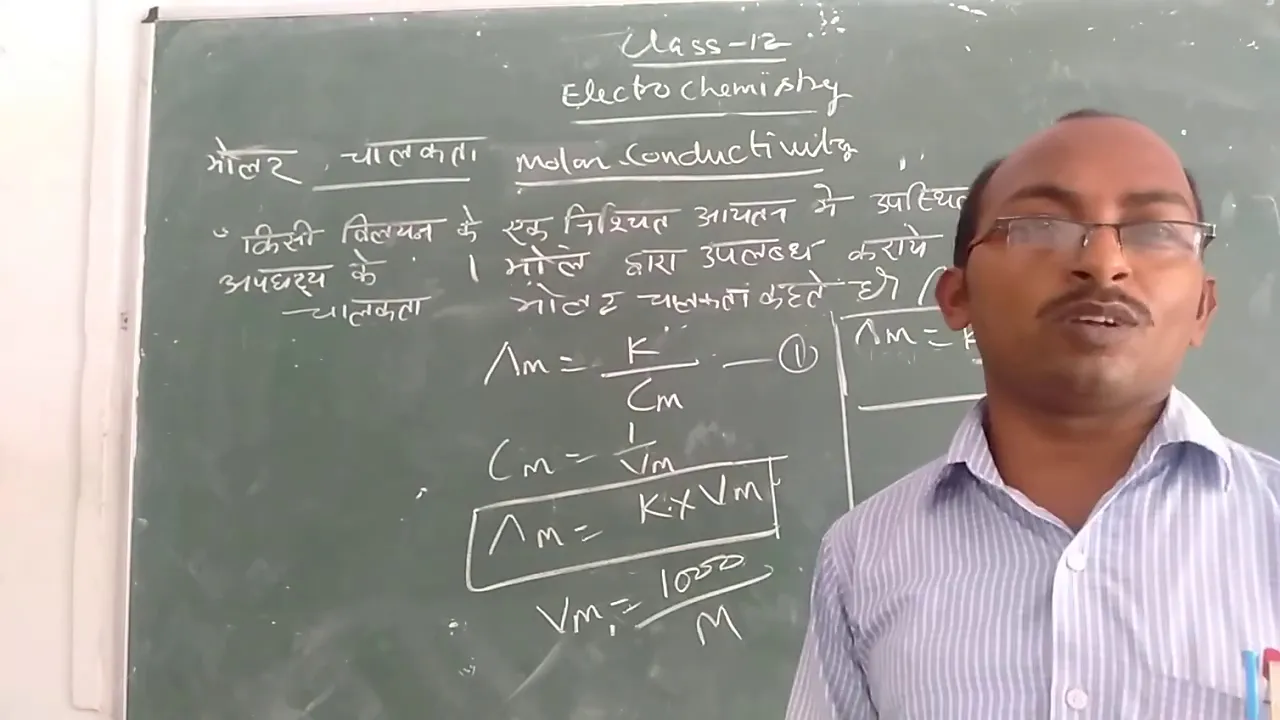 Class-12
Electrochemistry
मोलर चालकता Molar Conductivity
किसी विलयन के एक निश्चित आयतन मे उपस्थित
अपघट्य के 1 मोल द्वारा उपलब्ध कराये
चालकता मोलर चालकता कहते है।
Λm = K / Cm — ①
Λm = K
Cm = 1 / Vm
Λm = K × Vm
Vm = 1000 / M